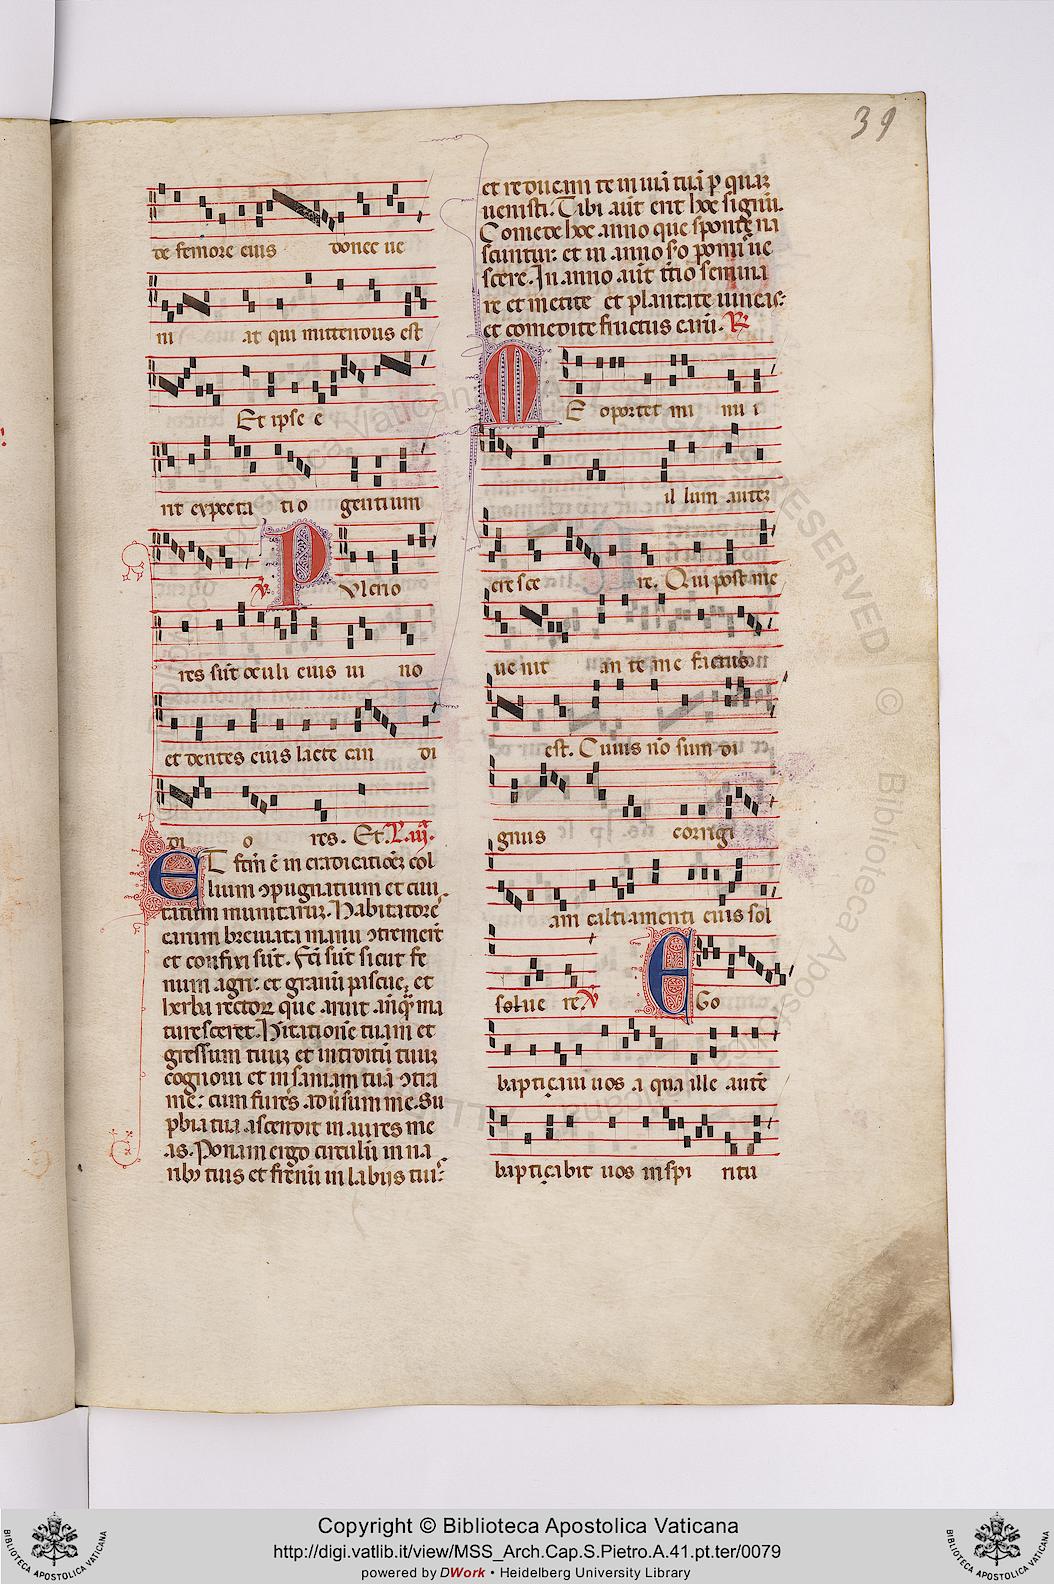 39
de femore eius donec ue
ni at qui mittendus est
Et ipse e
rit expecta tio gentium
℣. Pulcrio
res sūt oculi eius ui no
et dentes eius lacte can di
di o res. Et. L. iij.
Et
luium ↄpugnātium et ciui
tatum munitarū. Habitatore
earum breuiata manu ↄtremuerūt
et confusi sūt. Fcī sūt sicut fe
num agri: et gramē pascue, et
herba tector que aruit anq̄ ma
turesceret. Hitatione tuam et
gressum tuū et introitū tuū
cognoui et insaniam tuā ↄtra
me: cum fures aduīsum me. Su
pbia tua ascendit in aures me
as. Ponam ergo circulū in na
ribꝫ tuis et frenū in labijs tuis
et reducam te in uiā tuā p quā
uenisti. Tibi aūt erit hoc signū.
Comede hoc anno que sponte na
scuntur: et in anno sᵒo pomis ue
scere. In anno aūt tᵉtio semina
re et metite et plantate uineas:
et comedite fructus earū. ℟
ME oportet mi nu i
il lum autē
cresce re. Qui post me
ue nit an te me factus
est. Cuius nō sum di
gnus corrigi
am caltiamenti eius sol
solue re ℣ EGo
baptiçaui uos a qua ille autē
baptiçabit uos in spi ritu
BIBLIOTECA APOSTOLICA VATICANA
Copyright © Biblioteca Apostolica Vaticana
http://digi.vatlib.it/view/MSS_Arch.Cap.S.Pietro.A.41.pt.ter/0079
powered by DWork • Heidelberg University Library
BIBLIOTECA APOSTOLICA VATICANA